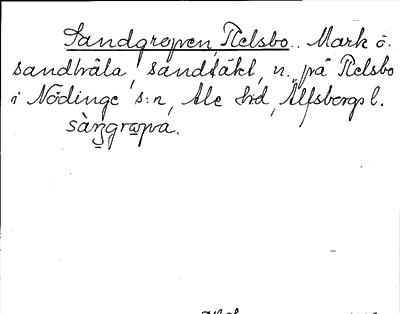 Sandgropen, Relsbo. Mark o.
sandhåla, sandtäkt, n. på Relsbo
i Nödinge s:n, Ale hd, Älfsborgs l.
sàngropa.